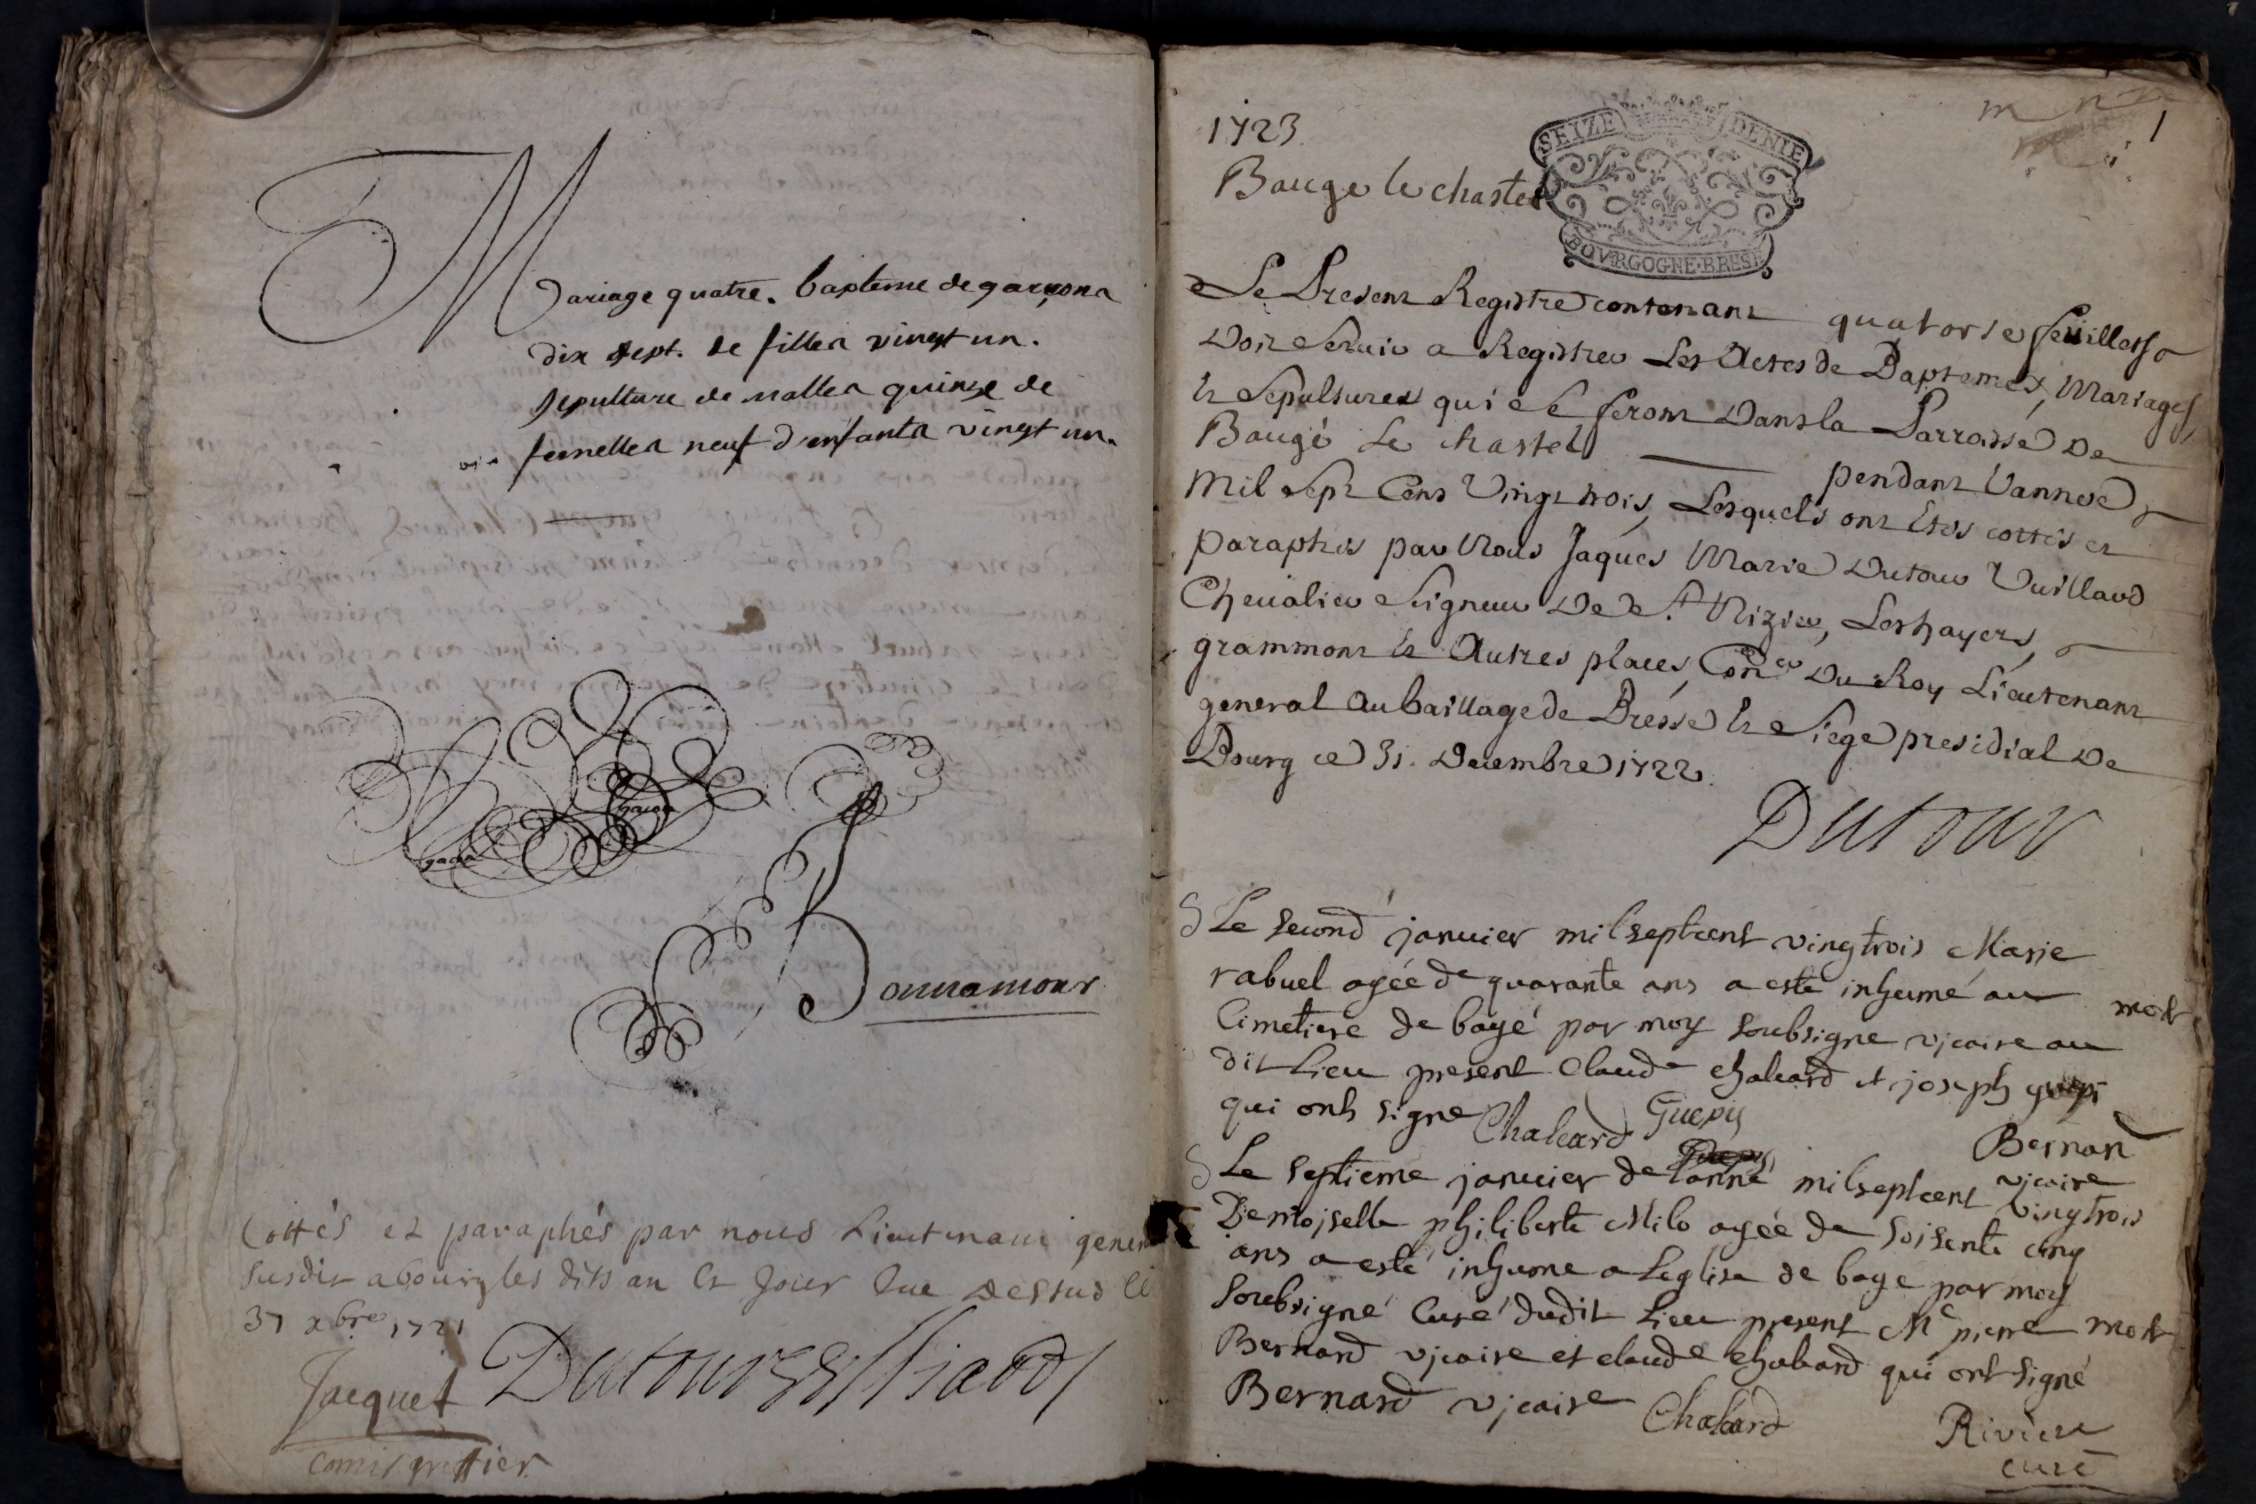 Mariage quatre. baptême de garçons
dix sept. de filles vingt un.
sepulture de malles quinze de
femelles neuf d'enfants vingt un.
Bonnamour
Cottés et paraphés par nous Lieutenant gener
susdit a bourg les dits an et jour que dessus le
31 xbre 1721
Jacquet
comis greffier
1723
Bauge le chastel
SEIZE DENIE
BOVRGOGNE·BRESE
1
Le Present Registre contenant quatorse feuillets
Doit Servir a Registrer Les Actes de Baptemes, Mariages,
et Sepultures qui Se feront Dans la Parroisse De
Baugé Le chastel pendant L'année
Mil Sept Cent Vingt trois, Lesquels ont Etés cottés et
Paraphés par Nous Jaques Marie Dutour Vuillard
Chevalier Seigneur De St. Nizier, Les hayers,
grammont et Autres places, Coner Du Roy Lieutenant
general Au bailliage de Bresse et Siege presidial De
Bourg ce 31. Decembre 1722.
Dutour
S Le second janvier mil septcent vingtrois Marie
rabuel agée de quarante ans a esté inhumé au
Cimetiere de bagé par moy soubsigne vicaire au
dit Lieu present Claude chaland et joseph guepi
qui ont signe Chaland Guepy
mort
Bernard
vicaire
S Le septieme janvier de lanné mil septcent vingtrois
Demoiselle philiberte Milo agée de soisente cinq
ans a esté inhume a Leglise de bage par moy
soubsigné Curé dudit Lieu present Me pierre
mort
Bernard vicaire et claude chaland qui ont signé
Bernard vicaire Chaland
Riviere
curé